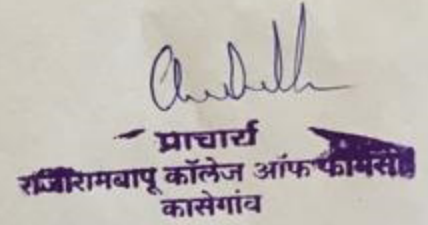 प्राचार्य
राजारामबापू कॉलेज ऑफ फार्मसी
कासेगांव